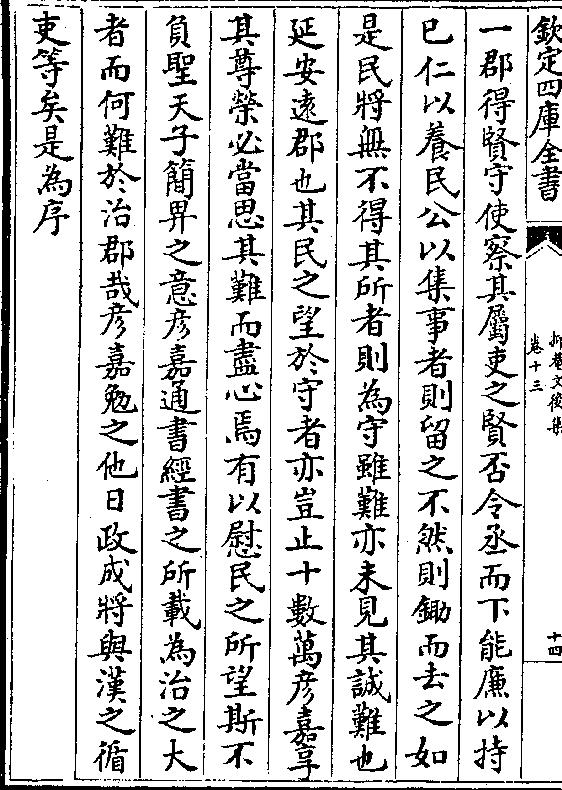 欽定四庫全書
抑菴文後集
卷十三
十四
一郡得賢守使察其屬吏之賢否令丞而下能廉以持
已仁以養民公以集事者則留之不然則鋤而去之如
是民將無不得其所者則為守雖難亦未見其誠難也
延安遠郡也其民之望於守者亦豈止十數萬彦嘉享
其尊榮必當思其難而盡心焉有以慰民之所望斯不
負聖天子簡畀之意彦嘉通書經書之所載為治之大
者而何難於治郡哉彦嘉勉之他日政成將與漢之循
吏等矣是為序